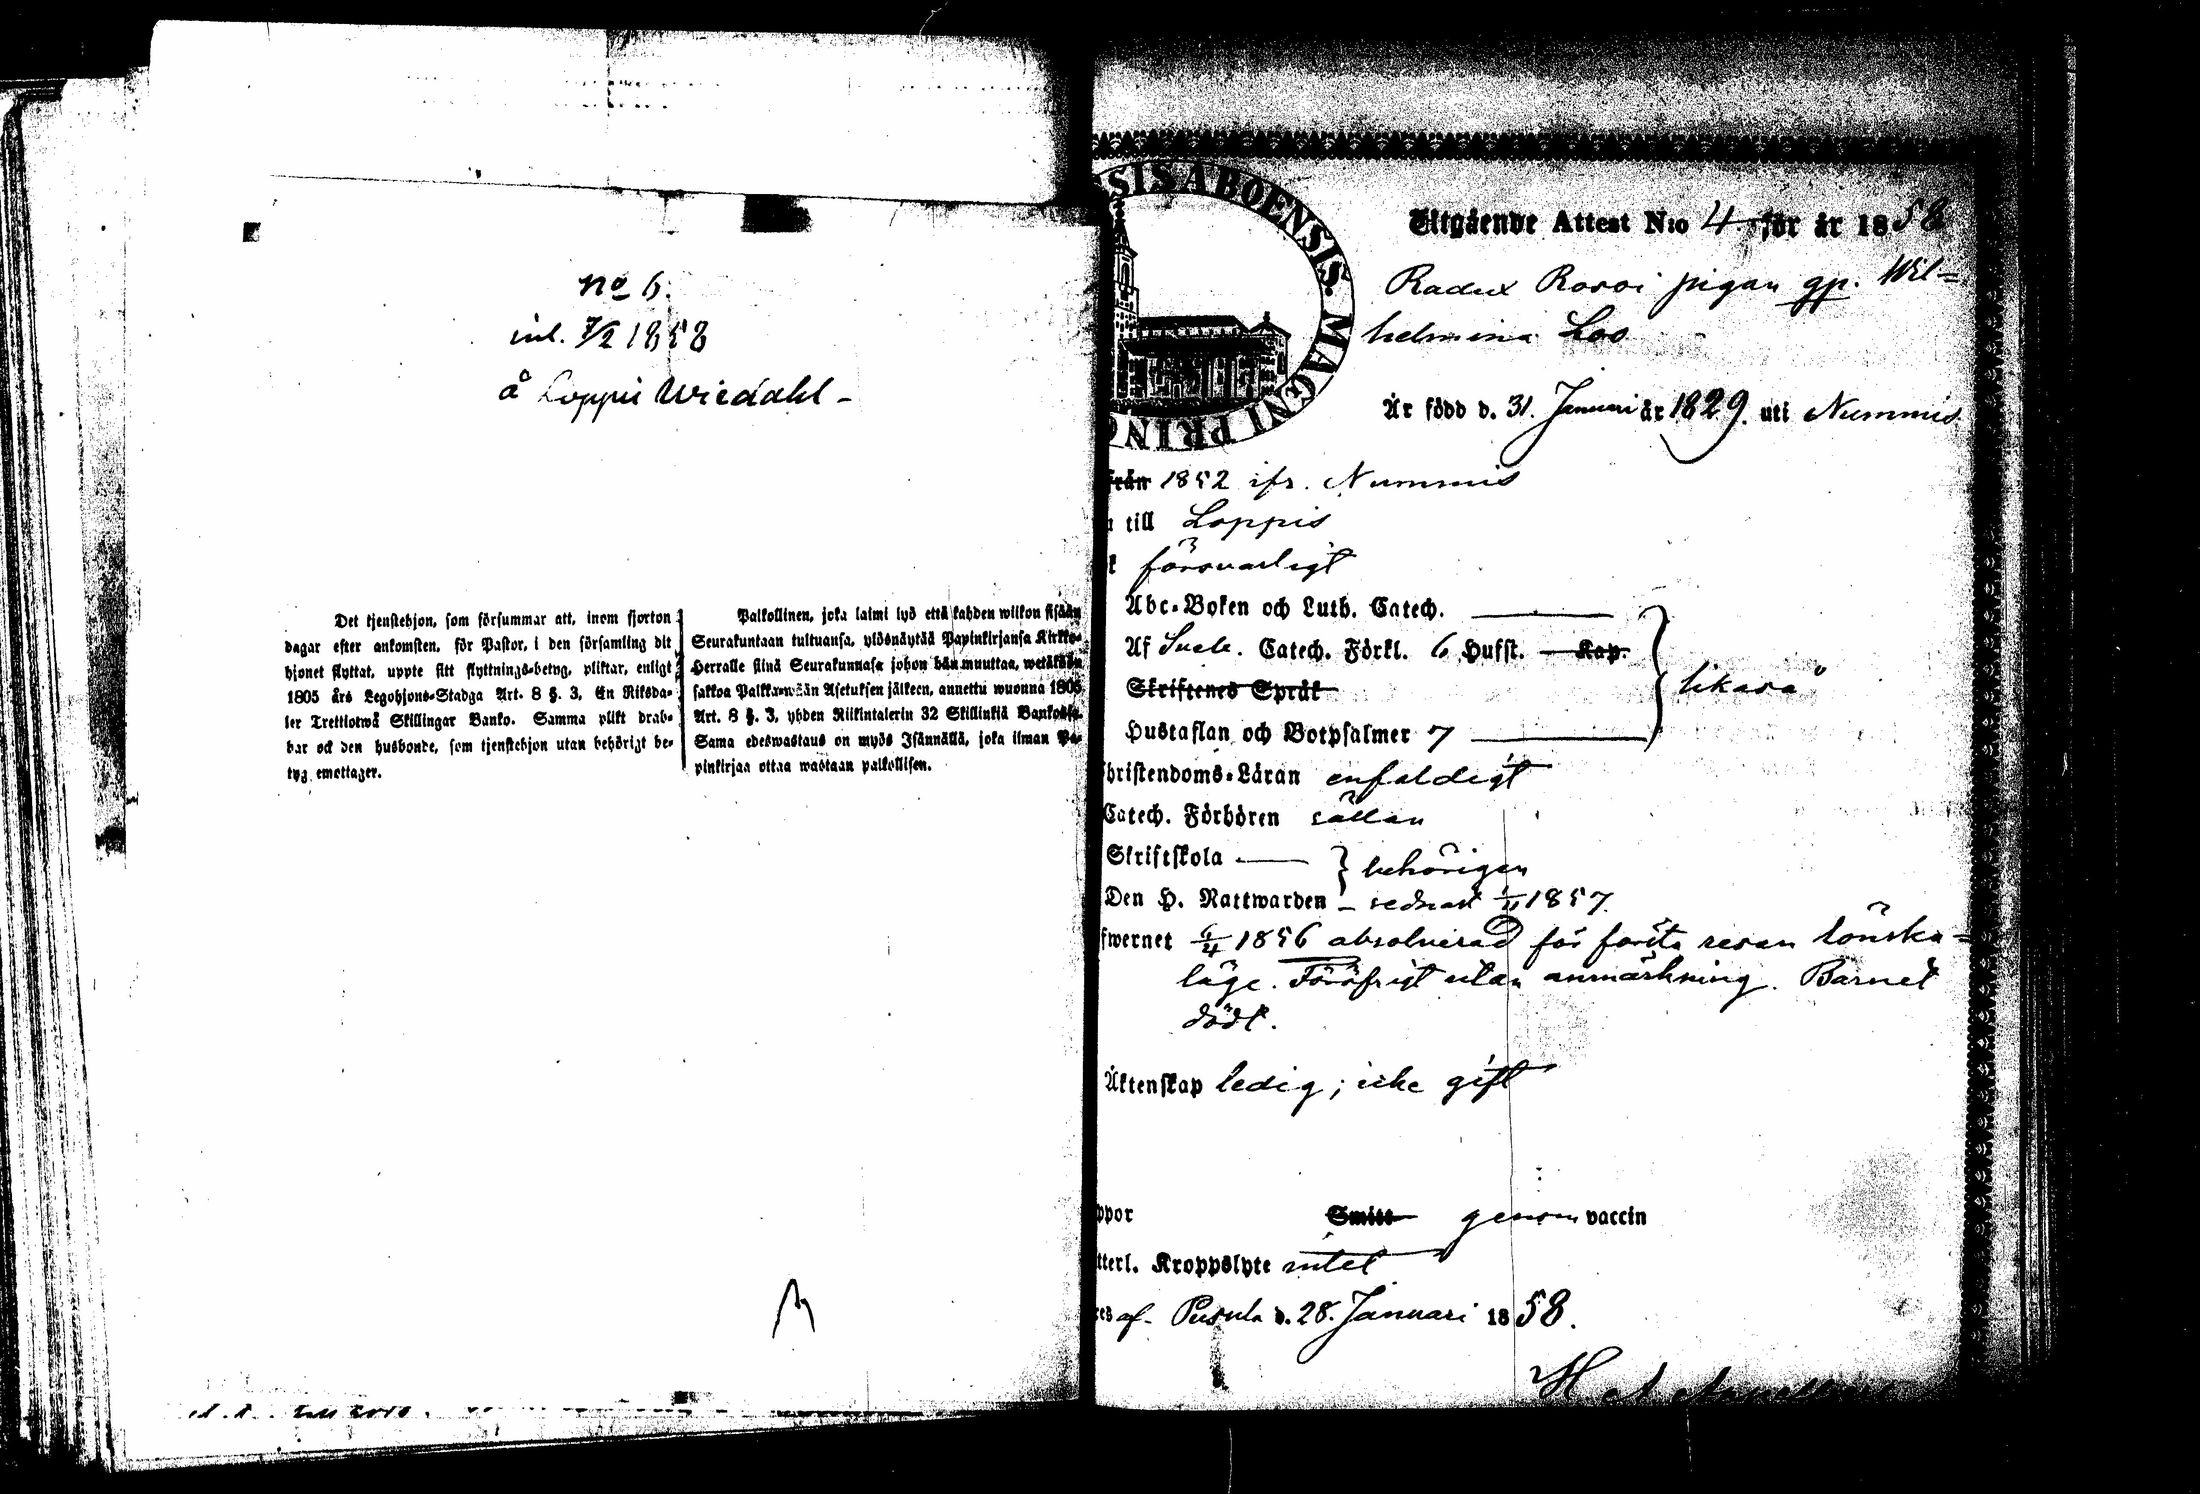 No 6.
inl. 7/2 1858
å Loppis Wiedahl -
Det tjenstehjon, som försummar att, inom fjorton
dagar efter ankomsten, för Pastor, i den församling dit
hjonet flyttat, uppte sitt flyttnings-betyg, pliktar, enligt
1805 års Legohjons-Stadga Art. 8 §. 3, En Riksda-
ler Trettiotwå Skillingar Banko. Samma plikt drab-
bar ock den husbonde, som tjenstehjon utan behörigt be-
tyg emottager.
Palkollinen, joka laimi lyö että kahden wiikon sisään
Seurakuntaan tultuansa, ylösnäytää Papinkirjansa Kirkko-
Herralle siinä Seurakunnasa johon hän muuttaa, wetäkään
sakkoa Palkkawään Asetuksen jälkeen, annettu wuonna 1805
Art. 8 §. 3, yhden Riikintalerin 32 Skillinkiä Bankosa.
Sama edeswastaus on myös Isännällä, joka ilman Pa-
pinkirjaa ottaa wastaan palkollisen.
SIS ABOENSIS. MAGNI PRINC
Utgående Attest N:o 4 för år 1858
pigan gp. Wil-
helmina Loo
Är född d. 31. Januari år 1829. uti Nummis
från 1852 ifr. Nummis
till Loppis
försvarligt
Abc-Boken och Luth. Catech.
Af Catech. Förkl. 6 Hufst. Kap.
Skriftenes Språk
likaså
Hustaflan och Botpsalmer 7
hristendoms-Läran enfaldigt
Catech. Förhören sällan
Skriftskola
behörigen
Den H. Nattwarden - sednast 1/11 1857.
fwernet 6/4 1856 absolverad för första resan lönska-
läge. Föröfrigt utan anmärkning. Barnet
dödt.
Äktenskap ledig; icke gift
ppor Smitt genom vaccin
tterl. Kroppslyte intet
af Pusula d. 28. Januari 1858.